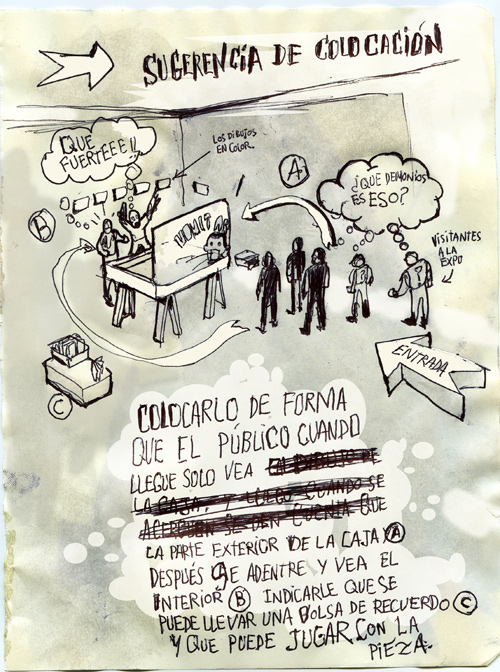 SUGERENCIA DE COLOCACIÓN
¡QUE
FUERTEEEE!!
LOS DIBUJOS
EN COLOR
A
¿QUE DEMONIOS
ES ESO?
B
VISITANTES
A LA
EXPO
ENTRADA
C
COLOCARLO DE FORMA
QUE EL PÚBLICO CUANDO
LLEGUE SOLO VEA
LA CAJA, Y LUEGO CUANDO SE
ACERQUEN SE DEN CUENTA QUE
LA PARTE EXTERIOR DE LA CAJA A
DESPUÉS SE ADENTRE Y VEA EL
INTERIOR B INDICARLE QUE SE
PUEDE LLEVAR UNA BOLSA DE RECUERDO C
Y QUE PUEDE JUGAR CON LA
PIEZA.